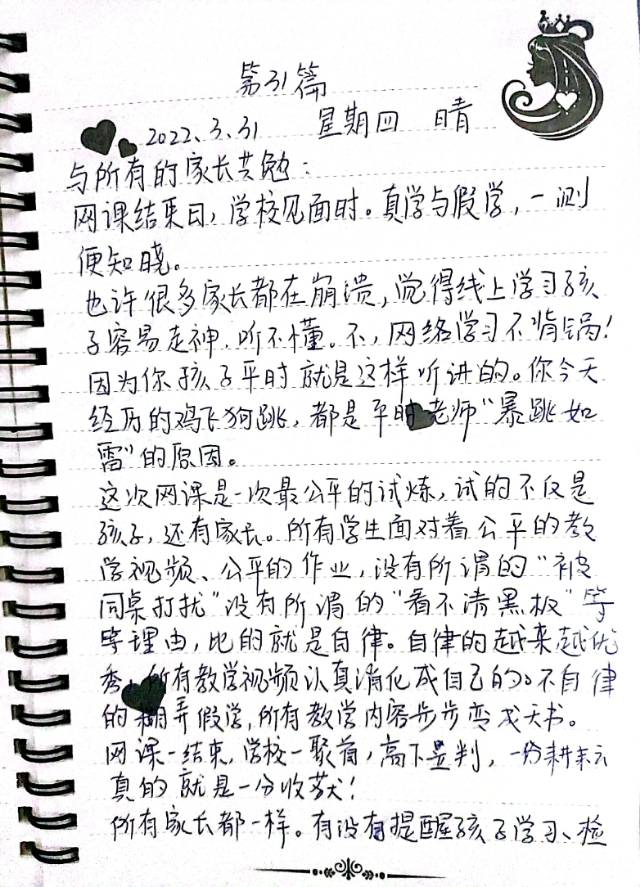 第31篇
2022、3、31 星期四 晴
与所有的家长共勉:
网课结束日,学校见面时。真学与假学,一测
便知晓。
也许很多家长都在崩溃,觉得线上学习孩
子容易走神,听不懂。不,网络学习不背锅!
因为你孩子平时就是这样听讲的。你今天
经历的鸡飞狗跳,都是平时老师“暴跳如
雷”的原因。
这次网课是一次最公平的试炼,试的不仅是
孩子,还有家长。所有学生面对着公平的教
学视频、公平的作业,没有所谓的“被
同桌打扰”没有所谓的“看不清黑板”等
等理由,比的就是自律。自律的越来越优
秀,所有教学视频认真消化成自己的。不自律
的糊弄假学,所有教学内容步步变成天书。
网课一结束,学校一聚首,高下立判,一份耕耘
真的就是一份收获!
所有家长都一样。有没有提醒孩子学习、检